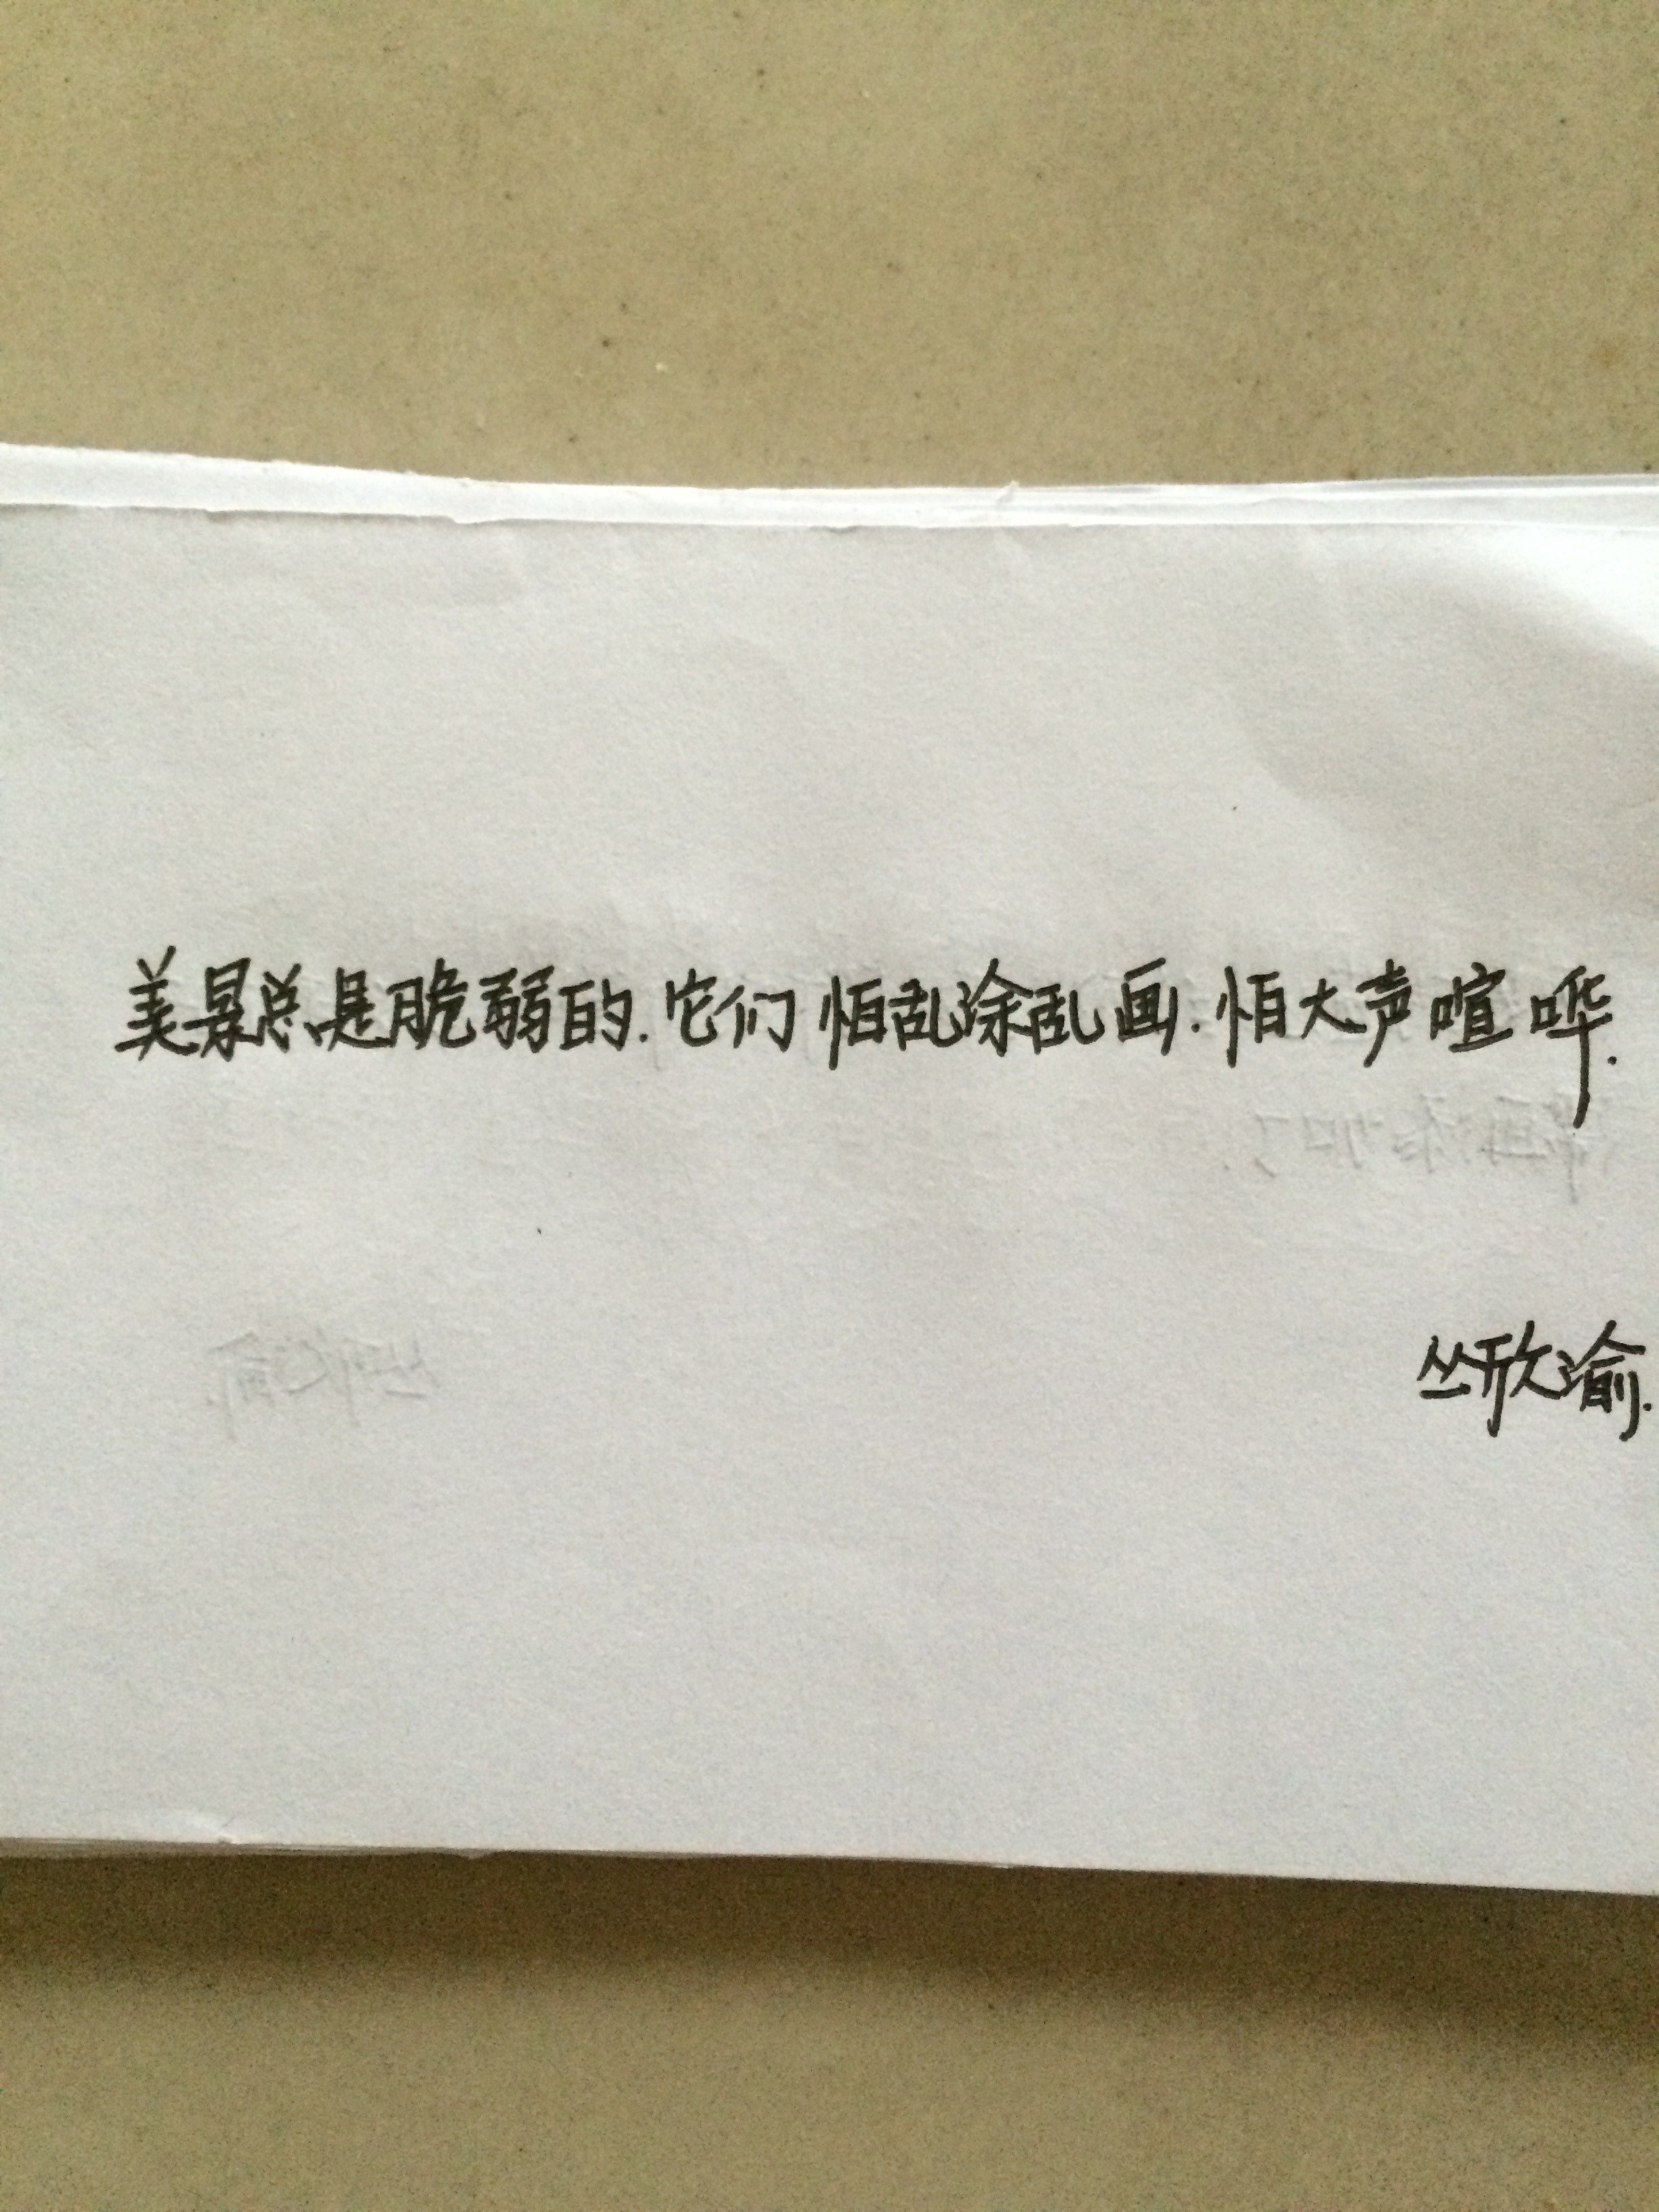 美景总是脆弱的.它们怕乱涂乱画.怕大声喧哗.
丛欣瑜.